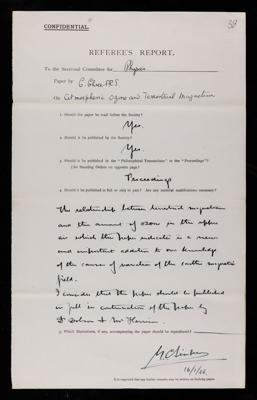 38
CONFIDENTIAL.
REFEREE'S REPORT.
To the Sectional Committee for Physics
Paper by C. Chree F.R.S.
On Atmospheric Ozone and Terrestrial Magnetism
1. Should the paper be read before the Society?
Yes.
2. Should it be published by the Society?
Yes.
3. Should it be published in the "Philosophical Transactions" or the "Proceedings"?
(See Standing Orders on opposite page.)
Proceedings
4. Should it be published in full or only in part? Are any material modifications necessary?
The relationship between terrestrial magnetism
and the amount of ozone in the upper
air which this paper indicates is a new
and important addition to our knowledge
of the causes of variation of the earths magnetic
field.
I consider that the paper should be published
in full in continuation of the paper by
Dr Dobson & Mr Harrison.
5. Which illustrations, if any, accompanying the paper should be reproduced?
16/1/26.
It is requested that any further remarks may be written on the following pages.